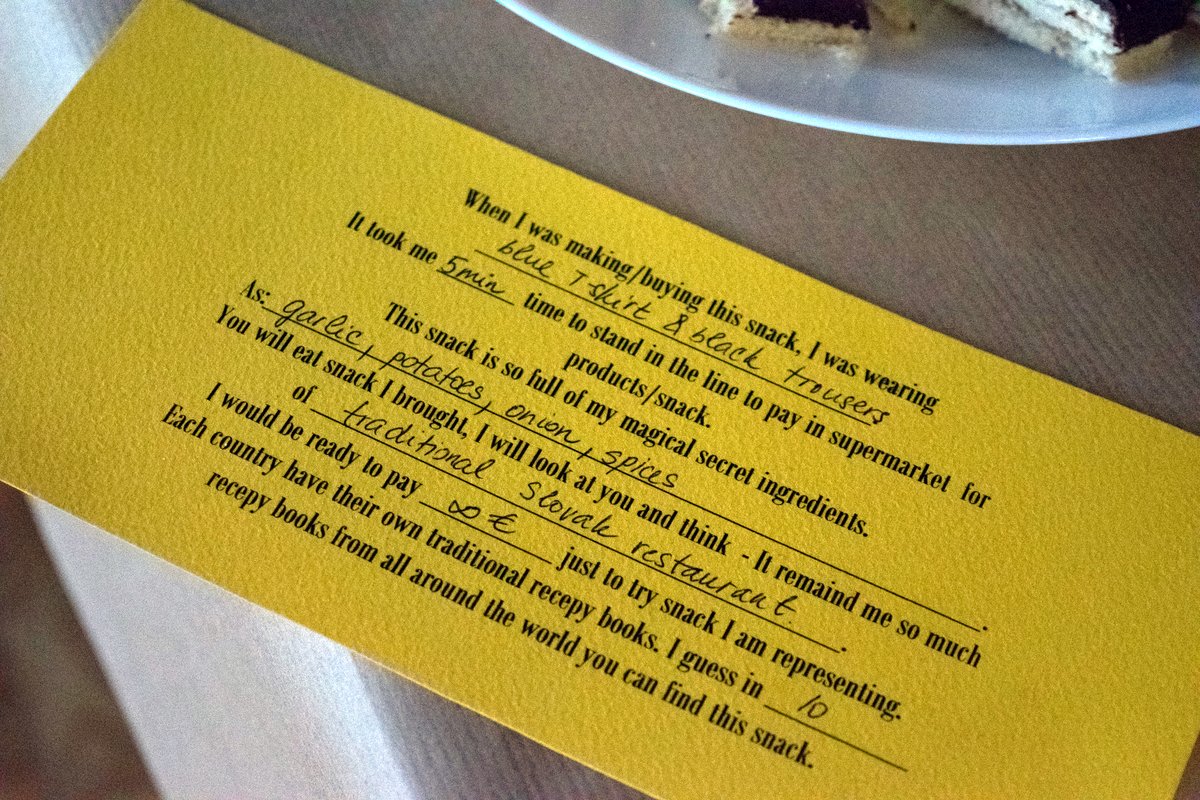 When I was making/buying this snack, I was wearing
blue T-shirt & black trousers
It took me 5min time to stand in the line to pay in supermarket for
products/snack.
This snack is so full of my magical secret ingredients.
As: garlic, potatoes, onion, spices.
You will eat snack I brought, I will look at you and think - It remaind me so much
of traditional Slovak restaurant.
I would be ready to pay ∞ € just to try snack I am representing.
Each country have their own traditional recepy books. I guess in 10
recepy books from all around the world you can find this snack.